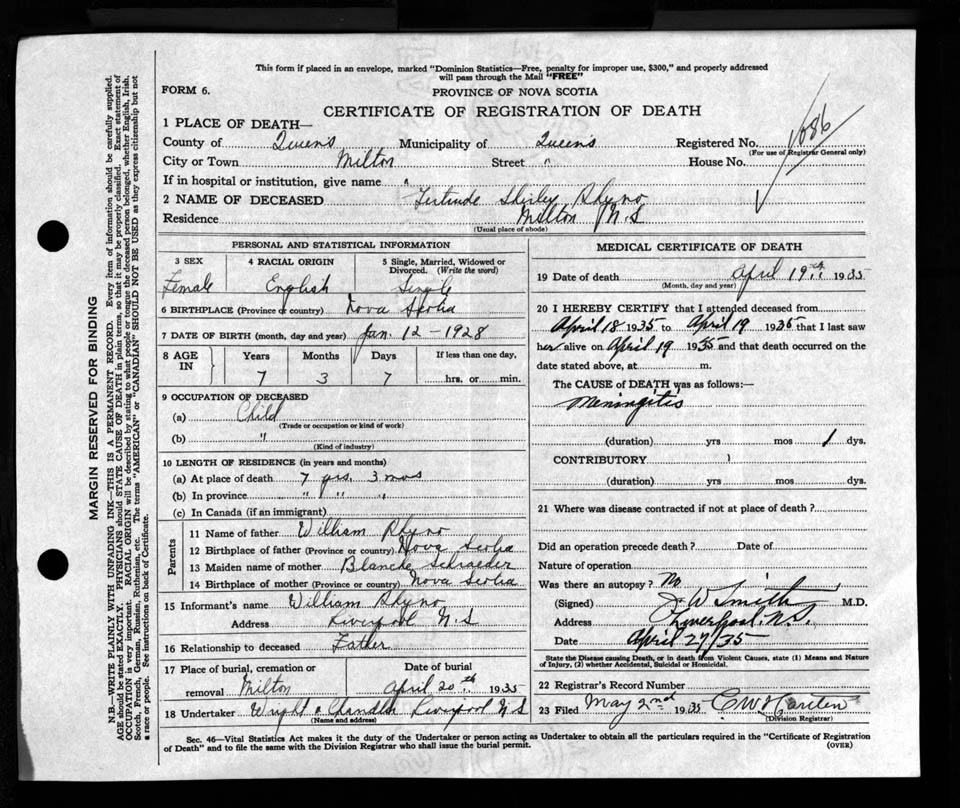 This form if placed in an envelope, marked "Dominion Statistics—Free, penalty for improper use, $300," and properly addressed
will pass through the Mail "FREE"
FORM 6.
PROVINCE OF NOVA SCOTIA
CERTIFICATE OF REGISTRATION OF DEATH
1 PLACE OF DEATH—
County of Queens Municipality of Queens Registered No. 1086
(For use of Registrar General only)
City or Town Milton Street " House No.
If in hospital or institution, give name "
2 NAME OF DECEASED Gertrude Shirley Rhyno
Residence Milton N.S
(Usual place of abode)
PERSONAL AND STATISTICAL INFORMATION
3 SEX 4 RACIAL ORIGIN 5 Single, Married, Widowed or
Divorced. (Write the word)
Female English Single
6 BIRTHPLACE (Province or country) Nova Scotia
7 DATE OF BIRTH (month, day and year) Jan. 12 - 1928
8 AGE IN Years Months Days If less than one day,
7 3 7 hrs. or min.
9 OCCUPATION OF DECEASED
(a) Child
(Trade or occupation or kind of work)
(b) "
(Kind of industry)
10 LENGTH OF RESIDENCE (in years and months)
(a) At place of death 7 yrs. 3 mos
(b) In province " " "
(c) In Canada (if an immigrant)
Parents
11 Name of father William Rhyno
12 Birthplace of father (Province or country) Nova Scotia
13 Maiden name of mother Blanche Schraeder
14 Birthplace of mother (Province or country) Nova Scotia
15 Informant's name William Rhyno
Address Liverpool N.S
16 Relationship to deceased Father
17 Place of burial, cremation or Date of burial
removal Milton April 20th 1935
18 Undertaker Wright & Chandler Liverpool N S
(Name and address)
MEDICAL CERTIFICATE OF DEATH
19 Date of death April 19th 1935
(Month, day and year)
20 I HEREBY CERTIFY that I attended deceased from
April 18 1935 to April 19 1935 that I last saw
her alive on April 19 1935 and that death occurred on the
date stated above, at m.
The CAUSE of DEATH was as follows:—
Meningitis
(duration) yrs mos 1 dys.
CONTRIBUTORY
(duration) yrs mos dys.
21 Where was disease contracted if not at place of death?
Did an operation precede death? Date of
Nature of operation
Was there an autopsy? No
(Signed) J W Smith M.D.
Address Liverpool. N.S.
Date April 27/35
State the Disease causing Death, or in death from Violent Causes, state (1) Means and Nature
of Injury, (2) whether Accidental, Suicidal or Homicidal.
22 Registrar's Record Number
23 Filed May 2nd 1935
(Division Registrar)
Sec. 46—Vital Statistics Act makes it the duty of the Undertaker or person acting as Undertaker to obtain all the particulars required in the "Certificate of Registration
of Death" and to file the same with the Division Registrar who shall issue the burial permit.
(OVER)
MARGIN RESERVED FOR BINDING
N.B.—WRITE PLAINLY WITH UNFADING INK—THIS IS A PERMANENT RECORD. Every item of information should be carefully supplied.
AGE should be stated EXACTLY. PHYSICIANS should STATE CAUSE OF DEATH in plain terms, so that it may be properly classified. Exact statement of
OCCUPATION is very important. RACIAL ORIGIN will be described by stating to what people or tongue the deceased person belonged, whether English, Irish,
Scotch, French, German, Russian, Ruthenian, etc. The terms "AMERICAN" or "CANADIAN" SHOULD NOT BE USED as they express citizenship but not
a race or people. See instructions on back of Certificate.